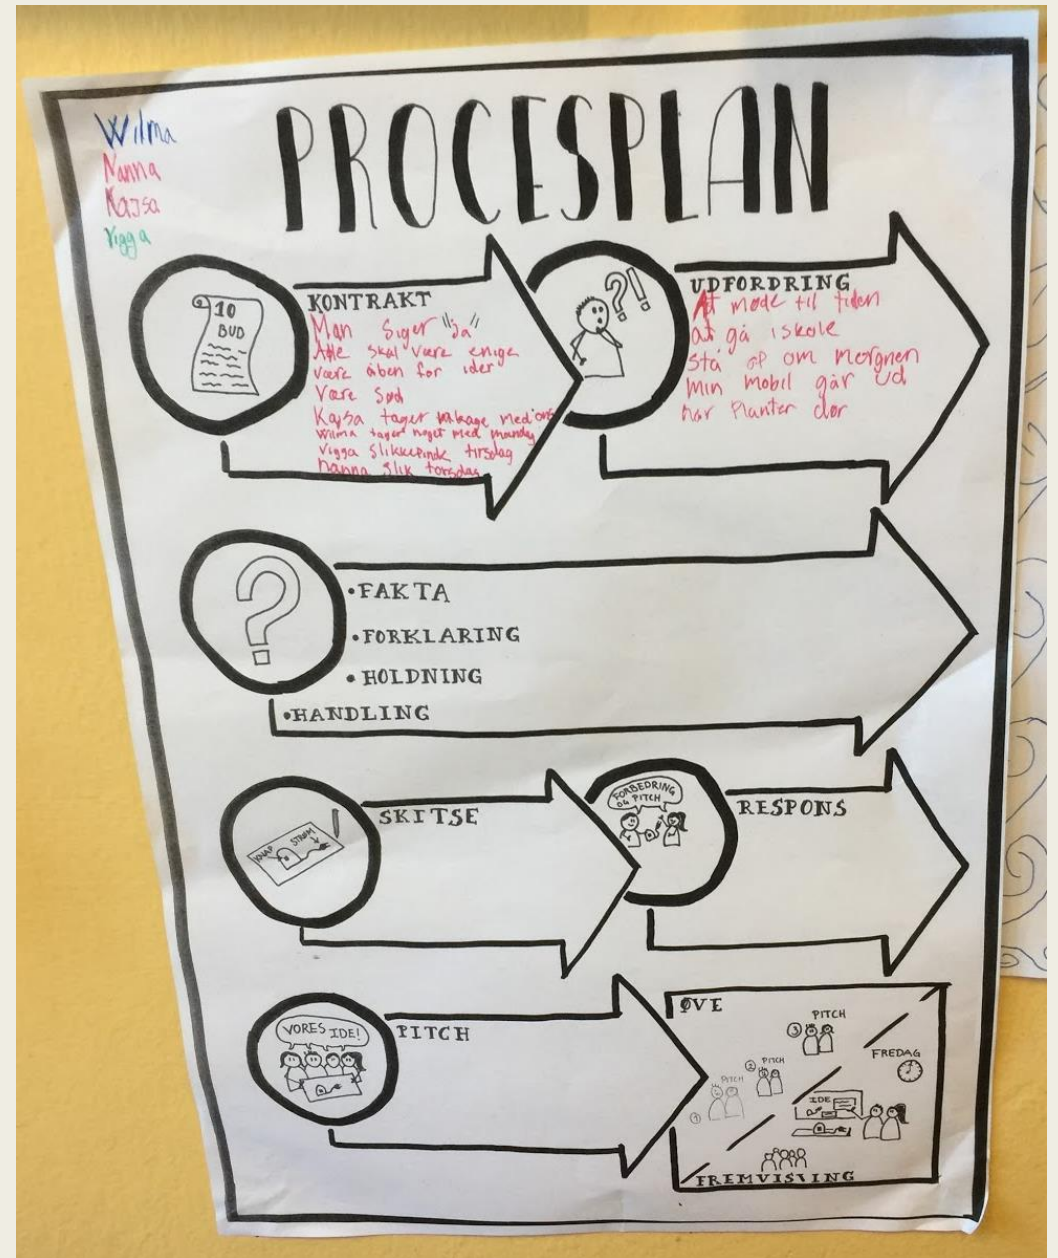 Wilma
Nanna
Kajsa
Vigga
PROCESPLAN
10
BUD
KONTRAKT
Man siger "ja"
Alle skal være enige
være åben for ider
Være sød
Kajsa tager kage med ons
Wilma tager noget med mandag
Vigga slikkepinde tirsdag
Nanna slik torsdag
?!
UDFORDRING
At møde til tiden
at gå i skole
stå op om morgnen
min mobil går ud
når Planter dør
?
•FAKTA
•FORKLARING
•HOLDNING
•HANDLING
KNAP
STRØM
SKITSE
FORBEDRING
OG PITCH
RESPONS
VORES IDE!
PITCH
ØVE
① PITCH
② PITCH
③ PITCH
FREDAG
IDE
FREMVISNING